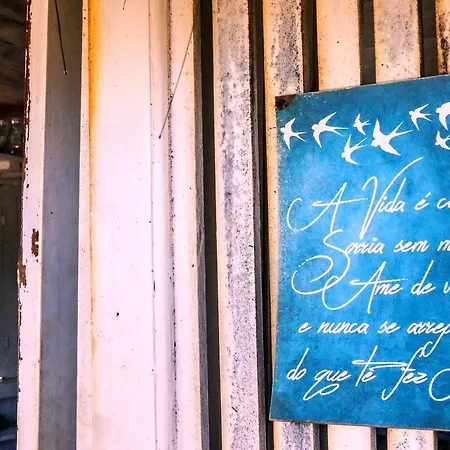 A Vida é c
Sorria sem m
Ame de v
e nunca se arrep
do que te fez